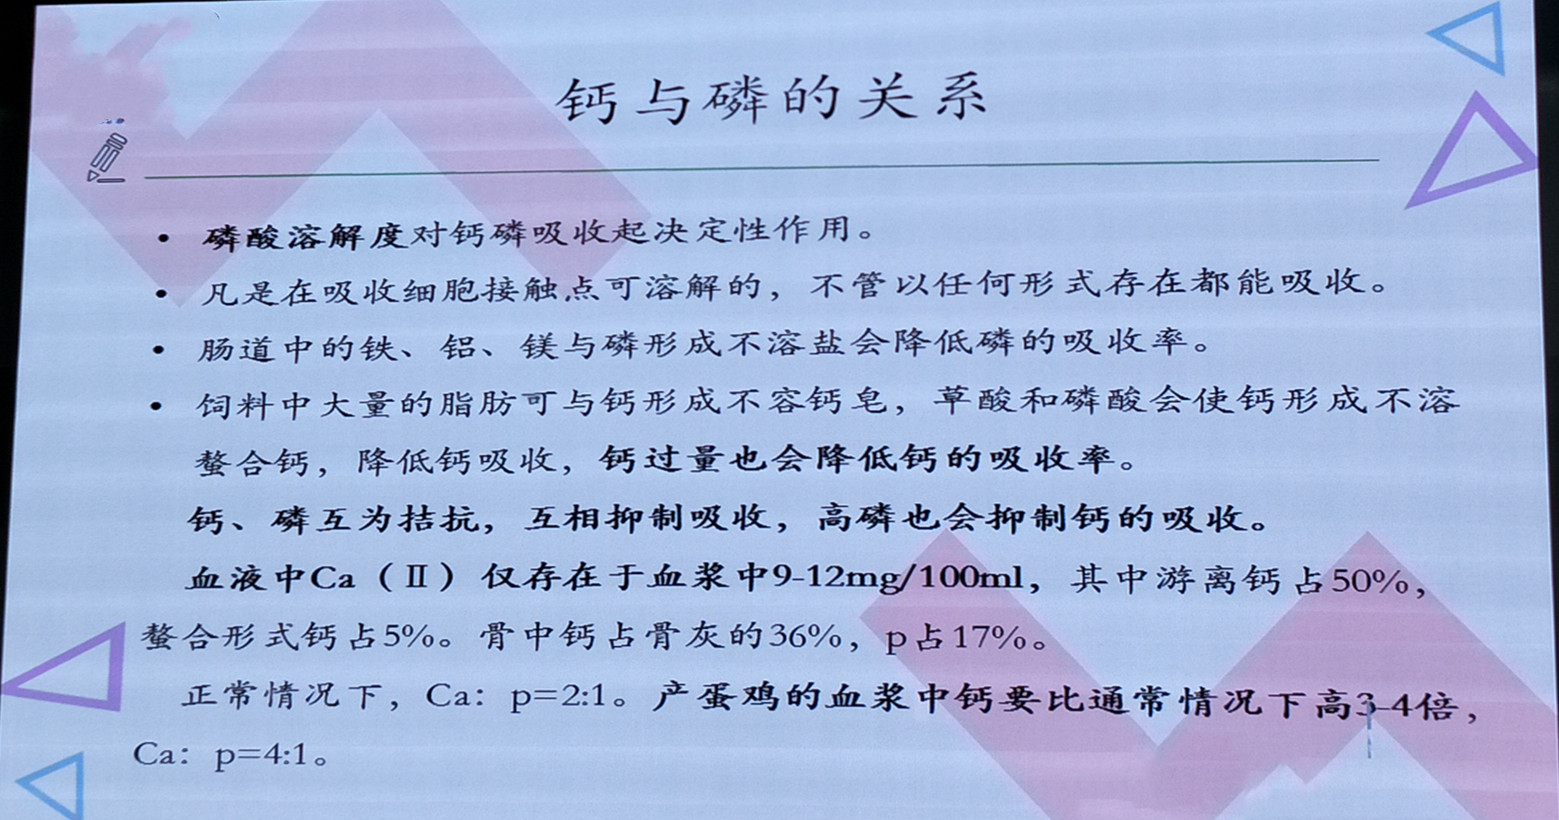 钙与磷的关系
• 磷酸溶解度对钙磷吸收起决定性作用。
• 凡是在吸收细胞接触点可溶解的，不管以任何形式存在都能吸收。
• 肠道中的铁、铝、镁与磷形成不溶盐会降低磷的吸收率。
• 饲料中大量的脂肪可与钙形成不容钙皂，草酸和磷酸会使钙形成不溶
螯合钙，降低钙吸收，钙过量也会降低钙的吸收率。
钙、磷互为拮抗，互相抑制吸收，高磷也会抑制钙的吸收。
血液中Ca（Ⅱ）仅存在于血浆中9-12mg/100ml，其中游离钙占50%，
螯合形式钙占5%。骨中钙占骨灰的36%，p占17%。
正常情况下，Ca：p=2:1。产蛋鸡的血浆中钙要比通常情况下高3-4倍，
Ca：p=4:1。